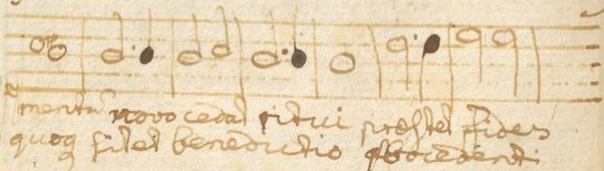 mentū novo cedat ritui præstet fides
quoq sit et benedictio procedenti